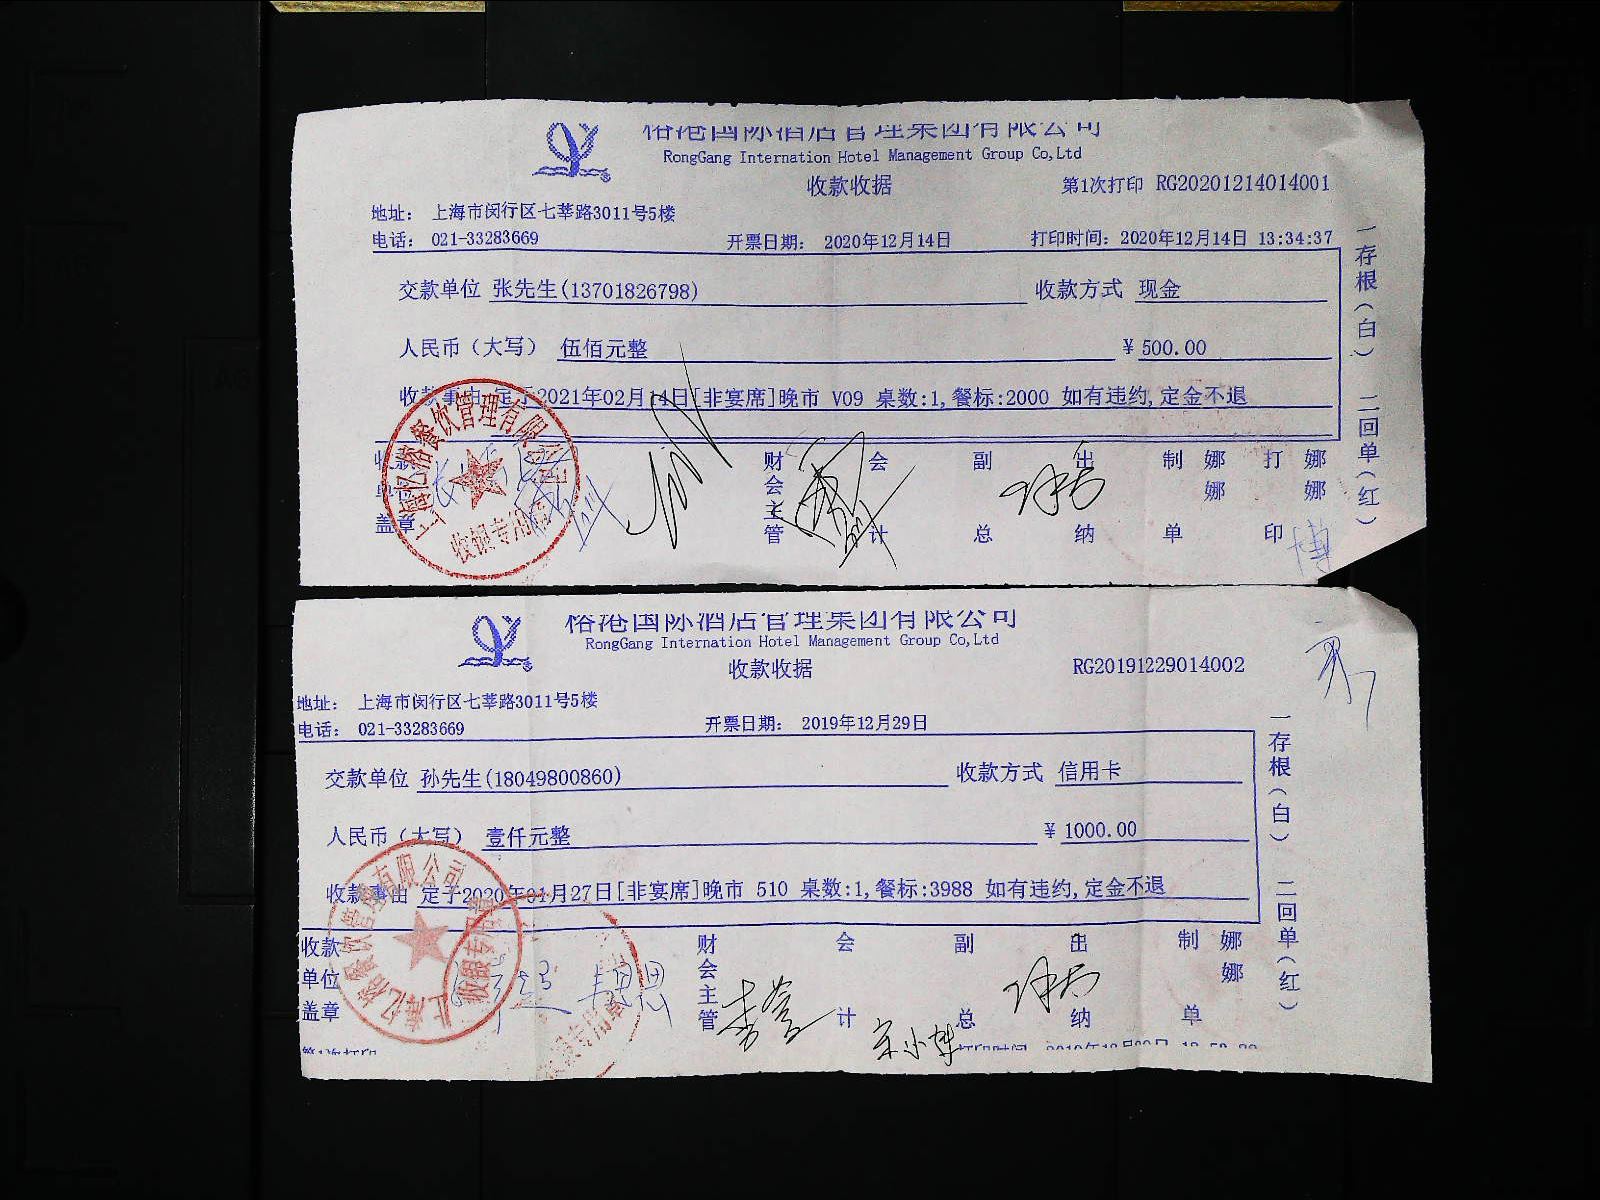 榕港国际酒店管理集团有限公司
RongGang Internation Hotel Management Group Co,Ltd
收款收据 第1次打印 RG20201214014001
地址： 上海市闵行区七莘路3011号5楼
电话： 021-33283669 开票日期： 2020年12月14日 打印时间：2020年12月14日 13:34:37
交款单位 张先生(13701826798) 收款方式 现金
人民币（大写） 伍佰元整 ￥500.00
收款事由 定于2021年02月14日[非宴席]晚市 V09 桌数:1,餐标:2000 如有违约,定金不退
收款单位盖章 财会主管 会计 副总 出纳 制单 娜娜 打印 娜娜
一存根（白） 二回单（红）
上海忆榕餐饮管理有限公司
收银专用章
榕港国际酒店管理集团有限公司
RongGang Internation Hotel Management Group Co,Ltd
收款收据 RG20191229014002
地址： 上海市闵行区七莘路3011号5楼
电话： 021-33283669 开票日期： 2019年12月29日
交款单位 孙先生(18049800860) 收款方式 信用卡
人民币（大写） 壹仟元整 ￥1000.00
收款事由 定于2020年01月27日[非宴席]晚市 510 桌数:1,餐标:3988 如有违约,定金不退
收款单位盖章 财会主管 会计 副总 出纳 制单 娜娜
一存根（白） 二回单（红）
上海忆榕餐饮管理有限公司
收银专用章
第1次打印 打印时间